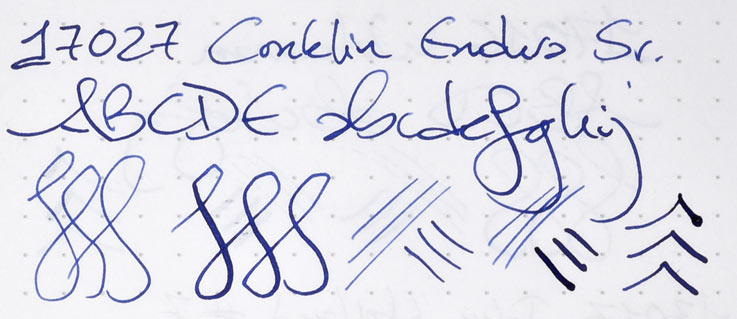 17027 Conklin Endura Sr.
ABCDE abcdefghij